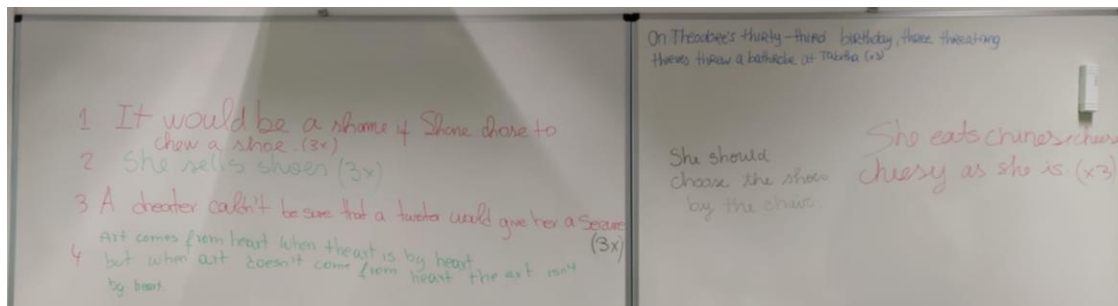 1 It would be a shame if Shane chose to
chew a shoe. (3x)
2 She sells shoes (3x)
3 A cheater couldn't be sure that a tweeter would give her a seizure
(3x)
4 Art comes from heart when the art is by heart,
but when art doesn't come from heart the art isn't
by heart.
On Theodore's thirty-third birthday, three threatening
thieves threw a bathrobe at Tabitha (x3)
She should
choose the shoes
by the chair.
She eats chinese cheese
cheesy as she is. (x3)